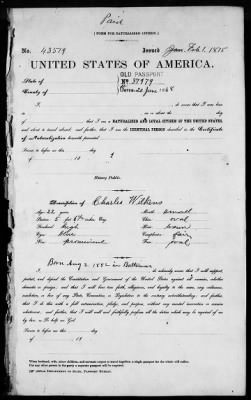 Paid
[FORM FOR NATURALIZED CITIZEN.]
No. 43579 Issued Jan. Feb. 1, 1875
UNITED STATES OF AMERICA.
OLD PASSPORT
State of No. 37979
County of
I, do swear that I was born
on or about the day
; that I am a NATURALIZED AND LOYAL CITIZEN OF THE UNITED STATES,
and about to travel abroad; and further, that I am the IDENTICAL PERSON described in the Certificate
of Naturalization herewith presented.
Sworn to before me, this day
of 18
Notary Public.
Description of Charles Wilkins
Age 22 year Mouth small
Stature 5 ft 6 Chin oval
Forehead high Hair brown
Eyes Blue Complexion fair
Nose prominent Face oval
Born Aug 2. 1852 in Baltimore
I do solemnly swear that I will support,
protect, and defend the Constitution and Government of the United States against all enemies, whether
domestic or foreign; and that I will bear true faith, allegiance, and loyalty to the same, any ordinance,
resolution, or law of any State, Convention, or Legislature to the contrary notwithstanding; and further,
that I do this with a full determination, pledge, and purpose, without any mental reservation or evasion
whatsoever; and further, that I will well and faithfully perform all the duties which may be required of me
by law: So help me God.
Sworn to before me, this day
of 18
When husband, wife, minor children, and servants expect to travel together, a single passport for the whole will suffice.
For any other person in the party a separate passport will be required.